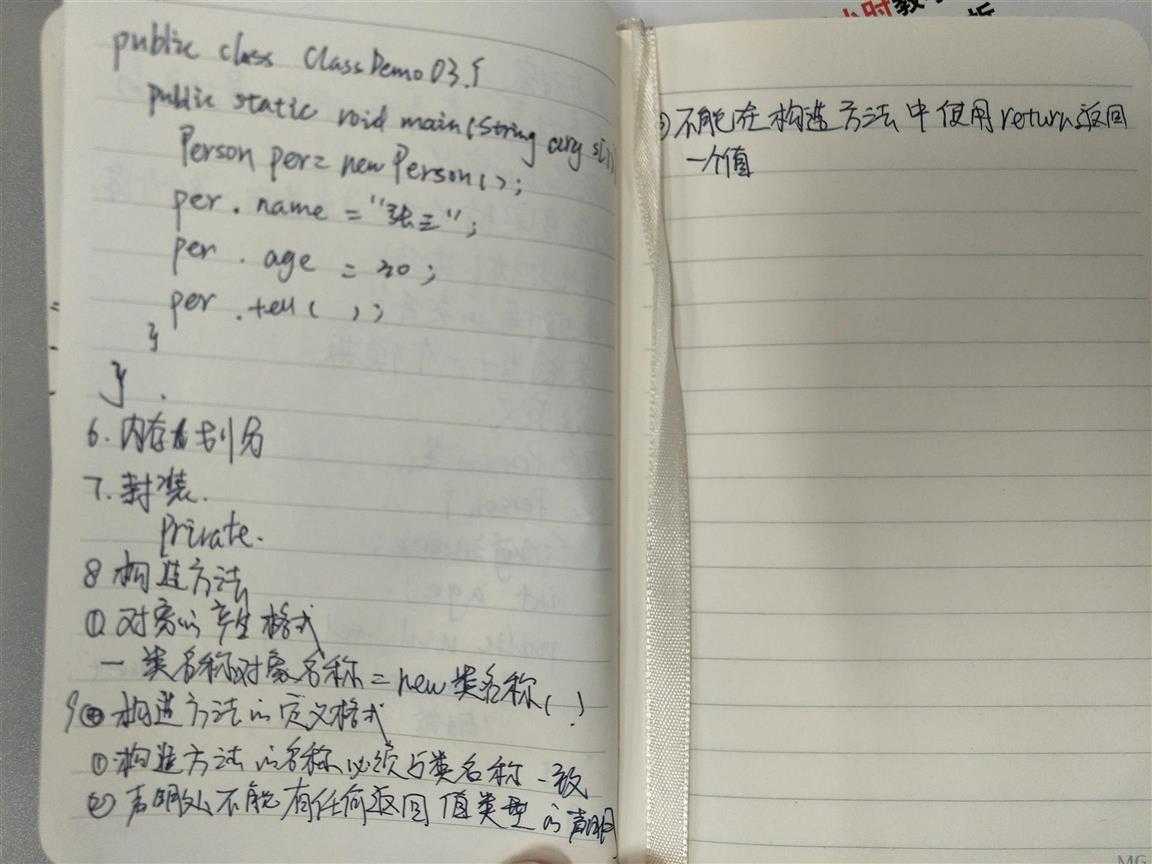 public class ClassDemo03{
public static void main(String args[]){
Person per= new Person();
per.name = "张三";
per.age = 30;
per.tell( );
}
}.
6.内存划分
7.封装.
private.
8 构造方法
①对象的产生格式
一 类名称 对象名称 = new 类名称( )
9 构造方法的定义格式
①构造方法的名称必须与类名称一致
②声明处不能有任何返回值类型的声明
③不能在构造方法中使用return返回
一个值
MG